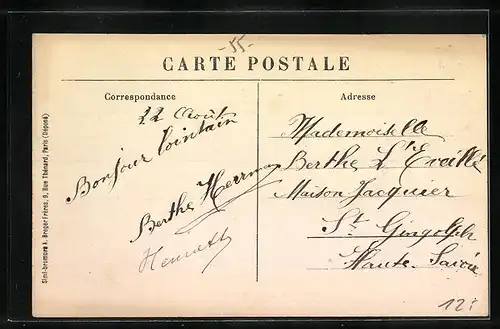 55-
CARTE POSTALE
Correspondance
22 Août
Bonjour lointain
Berthe Herrman
Adresse
Mademoiselle
Berthe L'Eveillé
Maison Jacquier
St. Gingolph
Haute-Savoie
Simi-bromure A. Breger Frères, 9, Rue Thénard, Paris (Déposé)